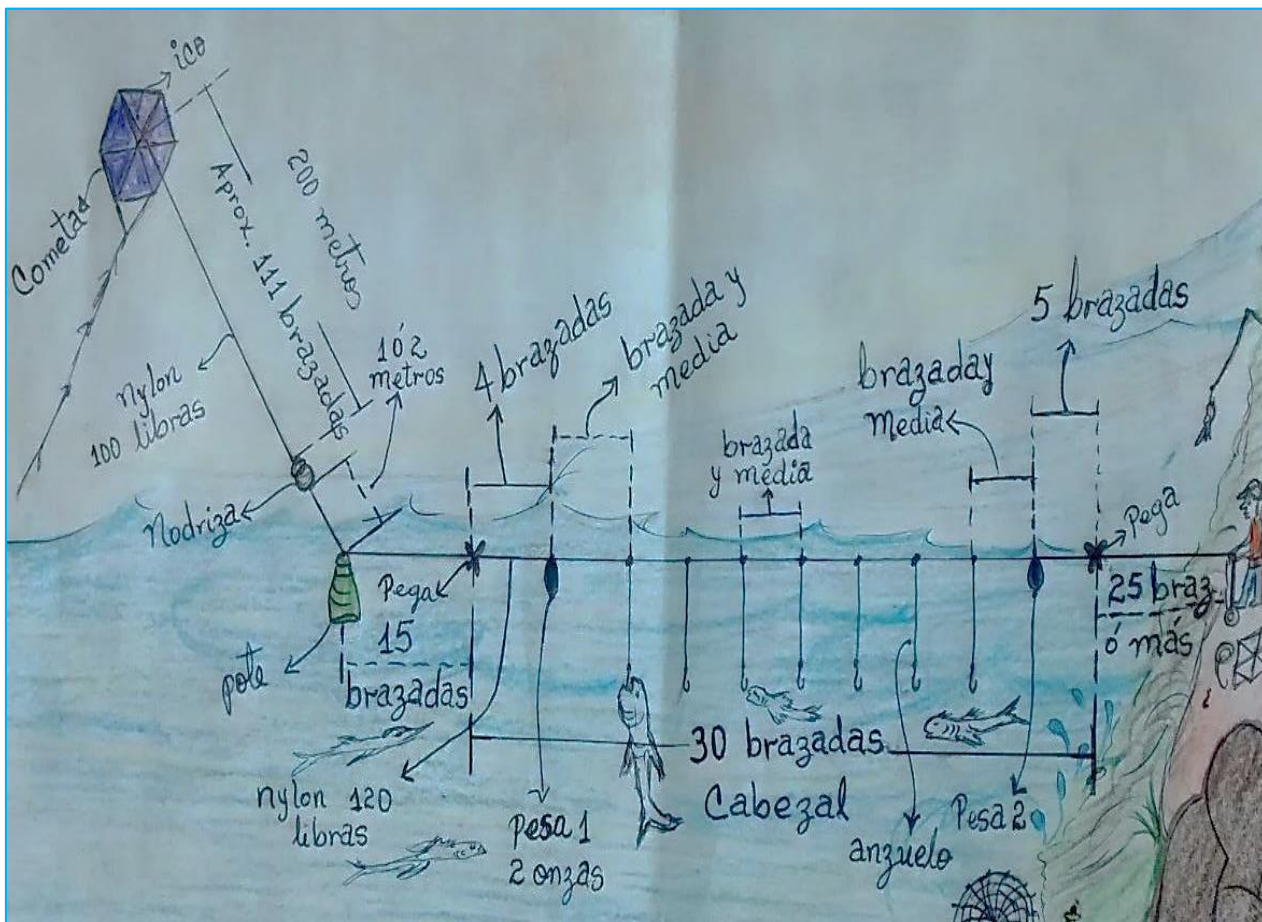 ico
Cometas
200 metros
Aprox. 111 brazadas
nylon
100 libras
1 ó 2
metros
Nodriza
4 brazadas
brazada y
media
brazada
y media
brazada y
Media
5 brazadas
Pega
Pega
15
brazadas
pote
25 braz
ó más
nylon 120
libras
Pesa 1
2 onzas
30 brazadas
Cabezal
anzuelo
Pesa 2